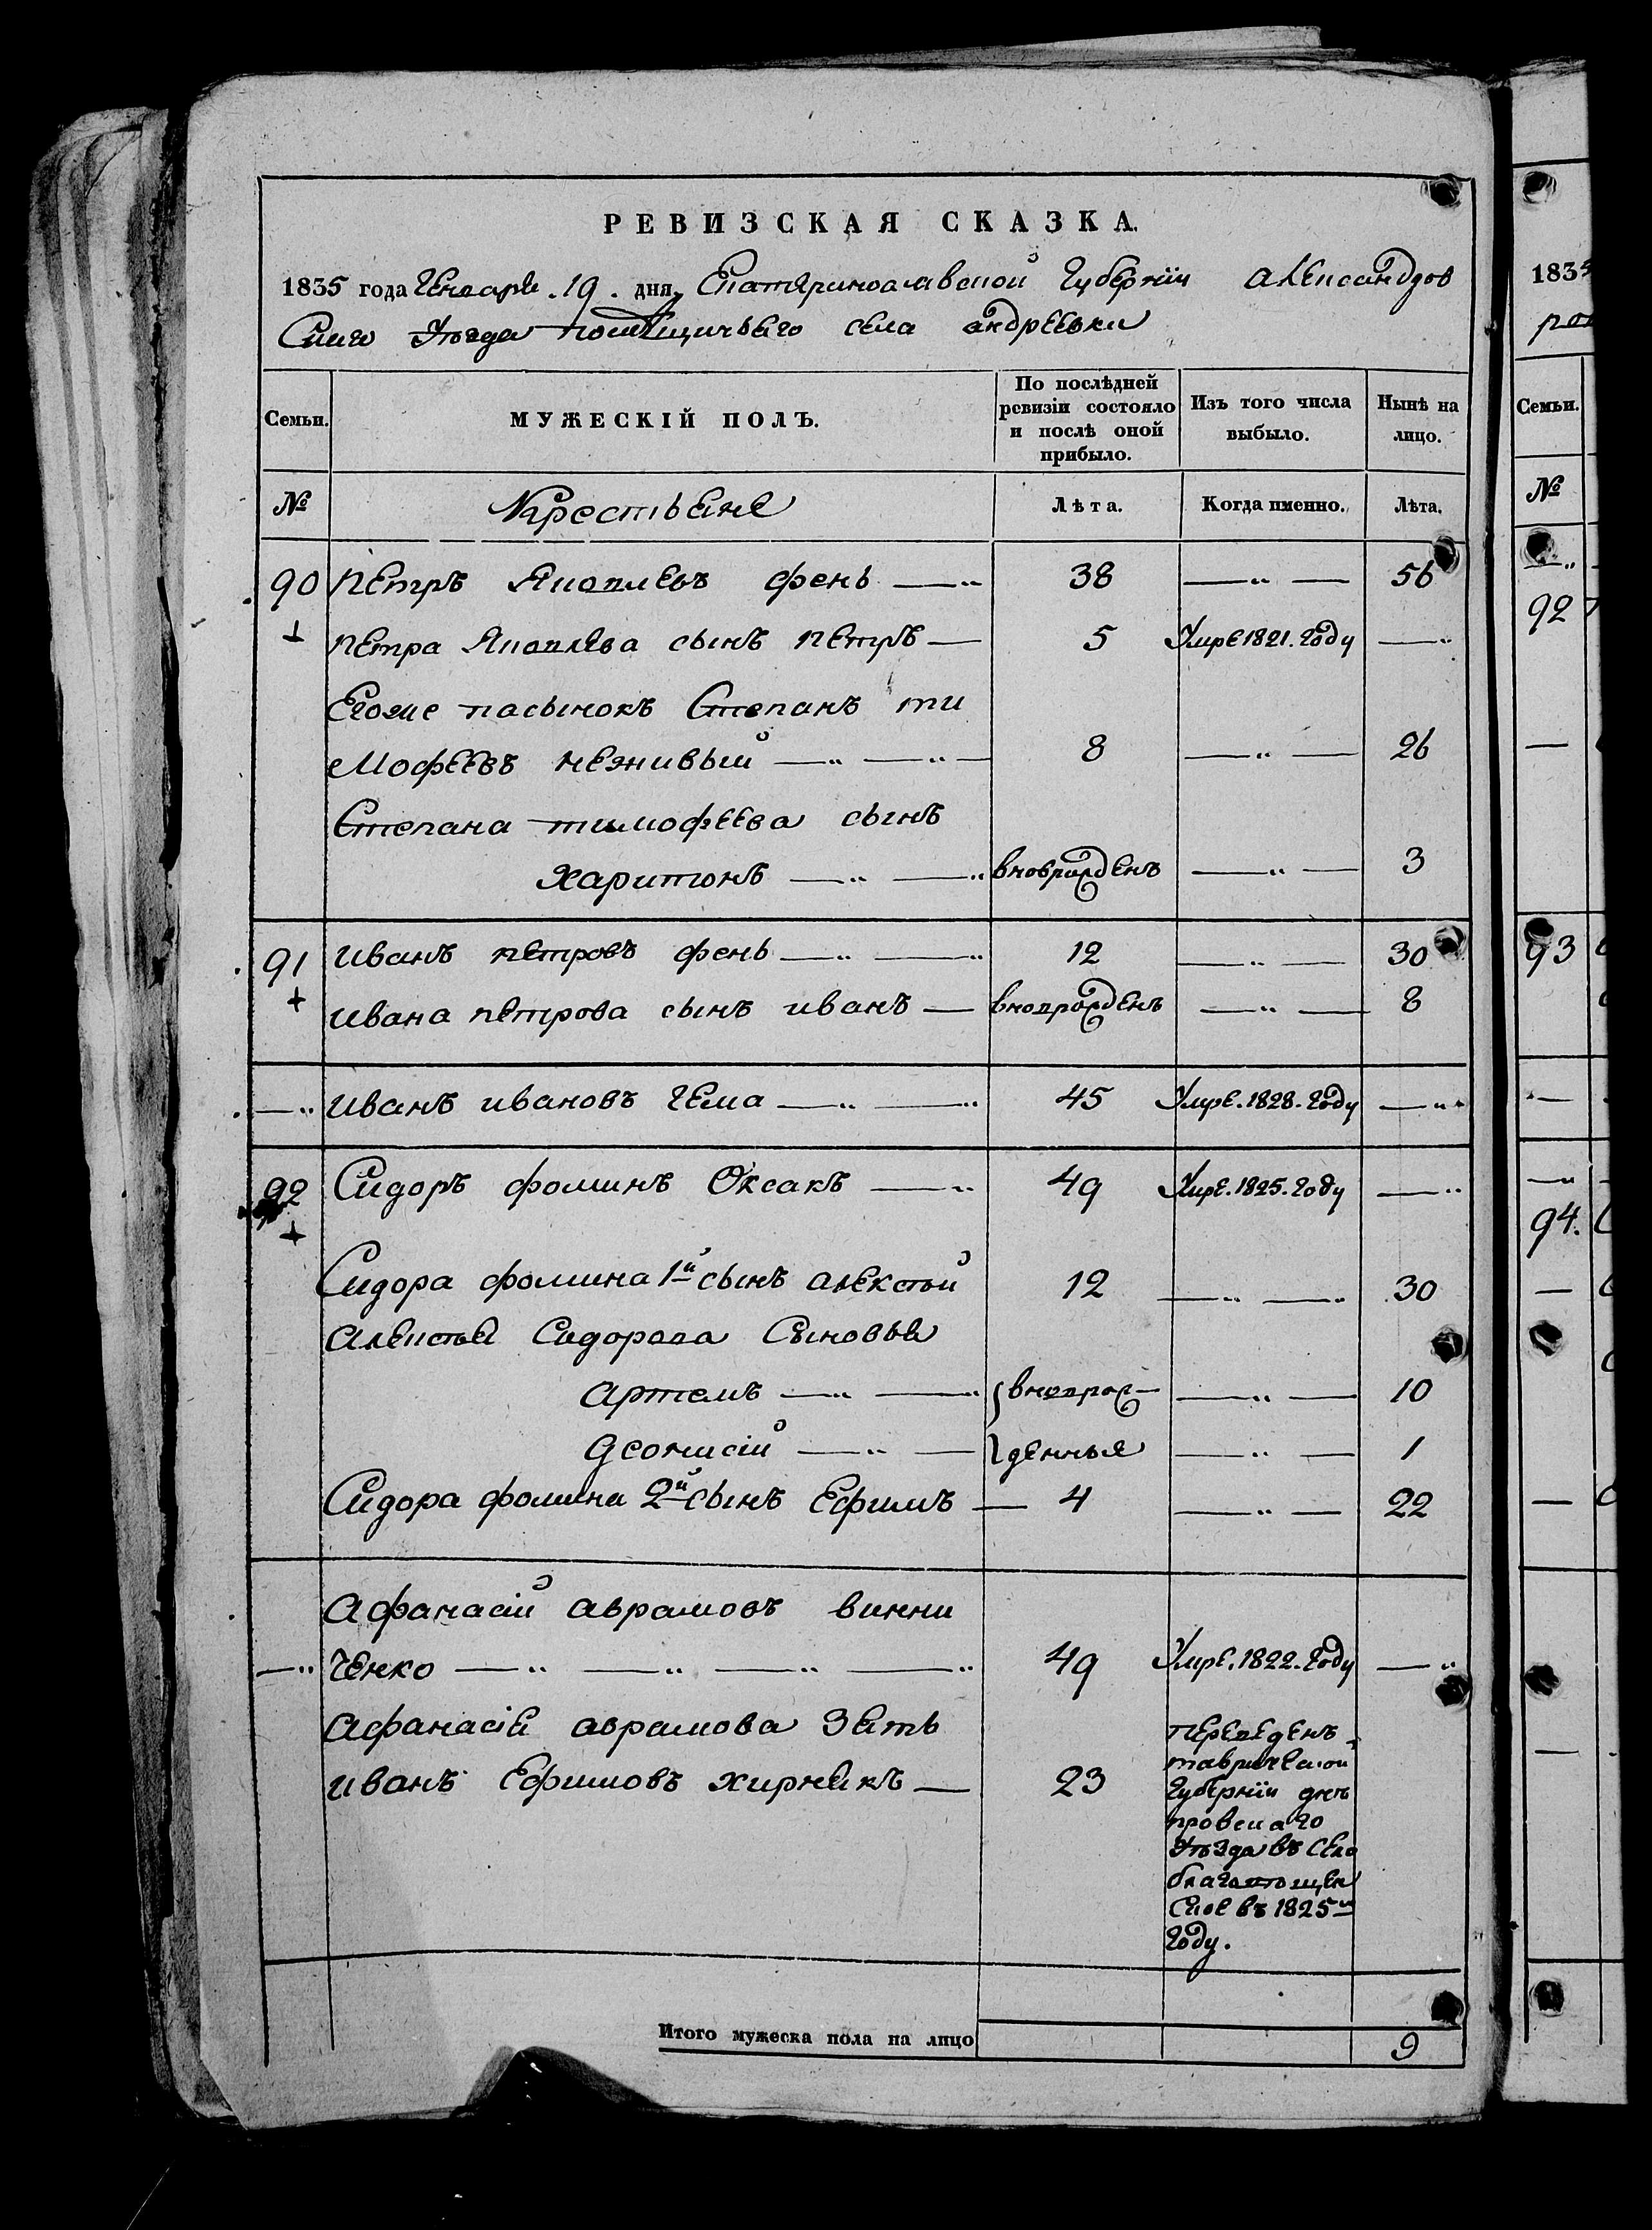 РЕВИЗСКАЯ СКАЗКА.
1835 года Генваря .19. дня, Екатериносла­вской Губернiи Александров
Скаго Уѣзда помѣщичьяго села андреевки
Семьи. МУЖЕСКIЙ ПОЛЪ. По послѣдней ревизiи состояло и послѣ оной прибыло. Изъ того числа выбыло. Нынѣ на лицо.
№ Крестьяне Лѣта. Когда именно. Лѣта.
90 Петръ Яковлевъ фень — „ 38 — „ — 56
Петра Яковлева сынъ петръ — 5 Умре 1821. Году — „
Егоже пасынокъ Степанъ ти
мофеевъ неживый — „ — „ — 8 — „ — 26
Степана тимофеева сынъ
харитонъ — „ — „ вновьрожденъ — „ — 3
91 иванъ петровъ фень — „ — „ 12 — „ — 30
+ ивана петрова сынъ иванъ — вноврожденъ — „ — 8
— „ иванъ ивановъ гема — „ — „ 45 Умре. 1828. Году — „
92 Сидоръ фоминъ Оксакъ — „ 49 Умре. 1825. Году — „
+
Сидора фомина 1й сынъ алексѣй 12 — „ — „ 30
алексѣя Сидорова Сыновья
артемъ — „ — „ вноврож— — „ — 10
деонисiй — „ — денныя — „ — 1
Сидора фомина 2й сынъ Ефимъ — 4 — „ — 22
афанасiй аврамовъ винни
— „ ченко — „ — „ — „ — „ 49 Умре. 1822. Году — „
афанасiя аврамова Зять
иванъ Ефимовъ хирнякъ — 23
переведенъ
таврической
губернiи днѣ
провскаго
Уѣзда въ Село
благовѣщен
Ское въ 1825м
Году.
Итого мужеска пола на лицо 9
1835
Семьи.
№
92
93
94.